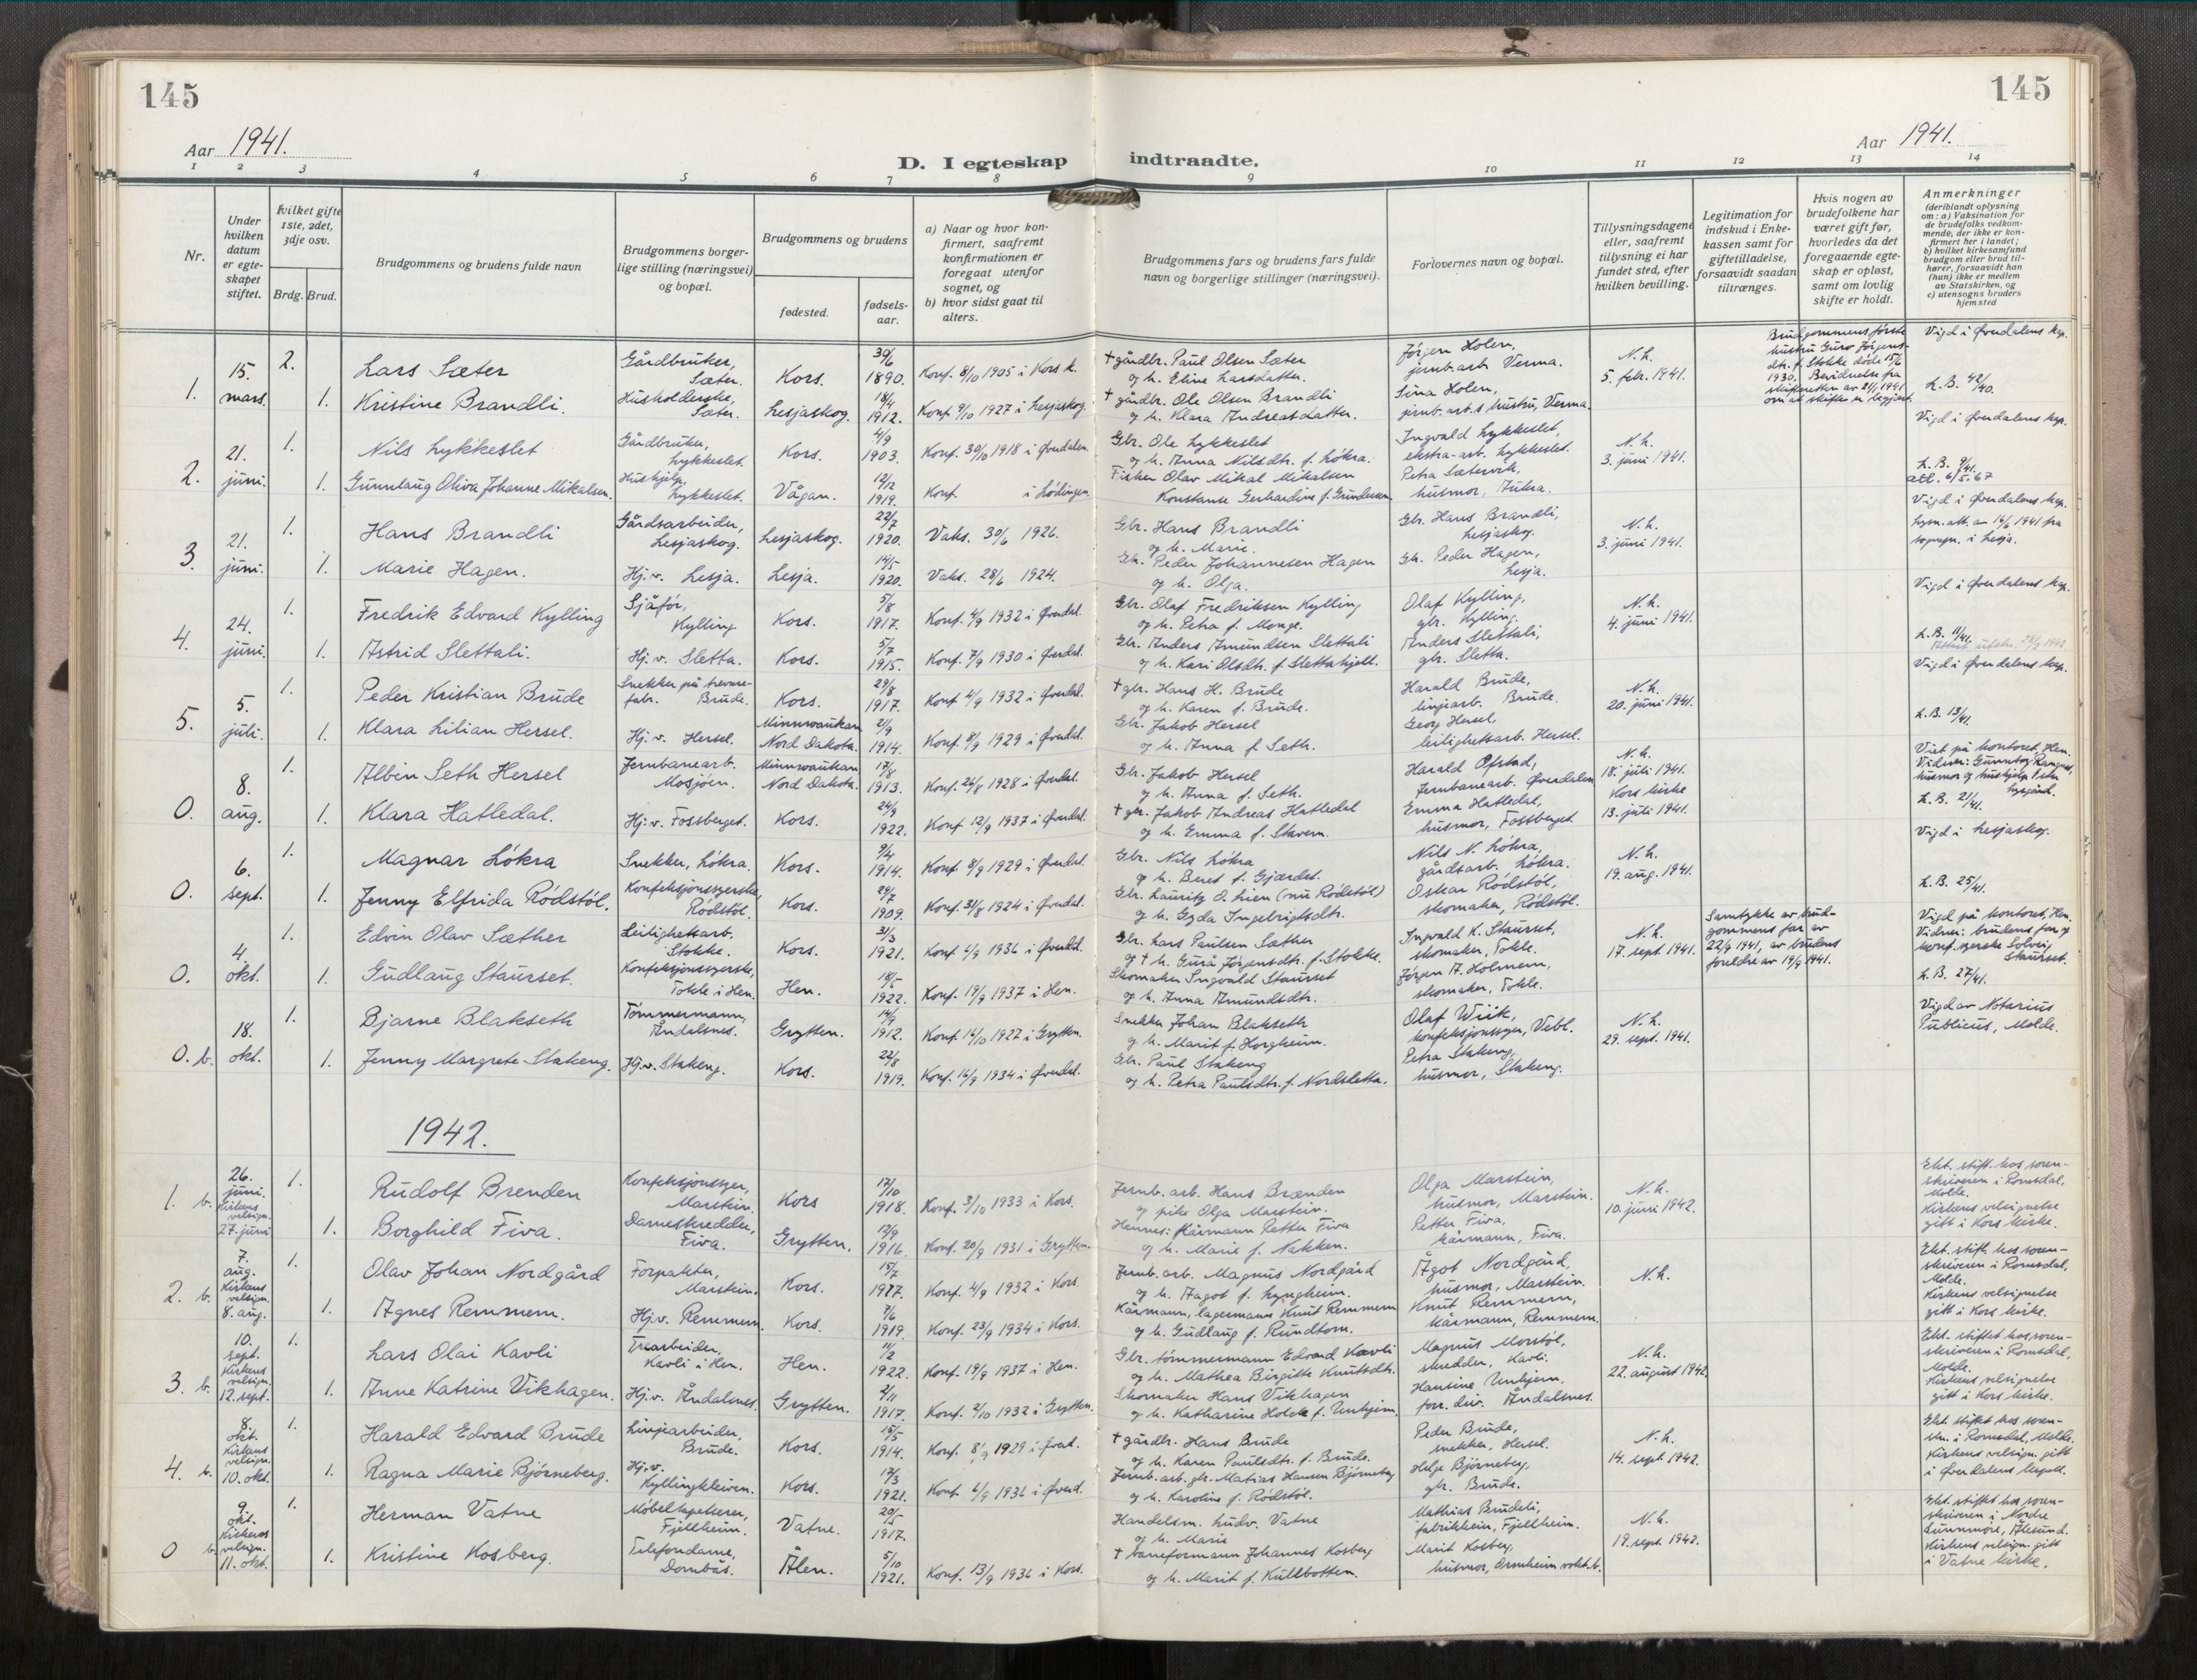 145
145
Aar 1941.
Aar 1941.
D. I egteskap indtraadte.
1 2 3 4 5 6 7 8 9 10 11 12 13 14
Nr.
Under hvilken datum er egteskapet stiftet.
hvilket gifte 1ste, 2det, 3dje osv.
Brdg. Brud.
Brudgommens og brudens fulde navn
Brudgommens borgerlige stilling (næringsvei) og bopæl.
Brudgommens og brudens
fødested.
fødselsaar.
a) Naar og hvor konfirmert, saafremt konfirmationen er foregaat utenfor sognet, og
b) hvor sidst gaat til alters.
Brudgommens fars og brudens fars fulde navn og borgerlige stillinger (næringsvei).
Forlovernes navn og bopæl.
Tillysningsdagene eller, saafremt tillysning ei har fundet sted, efter hvilken bevilling.
Legitimation for indskud i Enkekassen samt for giftetilladelse, forsaavidt saadan tiltrænges.
Hvis nogen av brudefolkene har været gift før, hvorledes da det foregaaende egteskap er opløst, samt om lovlig skifte er holdt.
Anmerkninger
(deriblandt oplysning om: a) Vaksination for de brudefolks vedkommende, der ikke er konfirmert her i landet; b) hvilket kirkesamfund brudgom eller brud tilhører, forsaavidt han (hun) ikke er medlem av Statskirken, og c) utensogns bruders hjemsted
1. 15. mars. 2. Lars Sæter Gårdbruker, Sæter. Kors. 30/6 1890. Konf. 8/10 1905 i Kors k. † gårdbr. Paul Olsen Sæter og h. Eline Larsdatter. Jørgen Holen, jernb.arb. Verma. N.k. 5. febr. 1941. Brudgommens første hustru Guro Jørgensdtr. f. Stokke døde 15/6 1930. Bevidnelse fra skifteretten av 21/1 1941 om at skifte er begjært. Vigd i Øverdalens kap.
1. Kristine Brandli. Husholderske, Sæter. Lesjaskog. 18/4 1912. Konf. 9/10 1927 i Lesjaskog. † gårdbr. Ole Olsen Brandli og h. Klara Andreasdatter. Sina Holen, jernb.arb.s hustru, Verma. L.B. 42/40.
2. 21. juni. 1. Nils Lykkeslet Gårdbruker, Lykkeslet. Kors. 4/9 1903. Konf. 30/10 1918 i Øverdalen. Gbr. Ole Lykkeslet og h. Anna Nilsdtr. f. Løkra. Ingvald Lykkeslet, ekstra-arb. Lykkeslet. N.k. 3. juni 1941. Vigd i Øverdalens kap.
1. Gunnlaug Oliva Johanne Mikalsen. Hushjelp, Lykkeslet. Vågan. 12/12 1919. Konf. i Lødingen. Fisker Olav Mikal Mikalsen Konstanse Gerhardine f. Gundersen. Petra Sætervik, husmor, Aukra. L.B. 9/41. att. 6/5.67
3. 21. juni. 1. Hans Brandli Gårdsarbeider, Lesjaskog. Lesjaskog. 22/7 1920. Vaks. 30/6 1926. Gbr. Hans Brandli og h. Marie. Gbr. Hans Brandli, Lesjaskog. N.k. 3. juni 1941. Vigd i Øverdalens kap. Lysn.att. av 16/6 1941 fra sognepr. i Lesja.
1. Marie Hagen. Hj.v. Lesja. Lesja. 14/5 1920. Vaks. 28/6 1924. Gbr. Peder Johannesen Hagen og h. Olga. Gbr. Peder Hagen, Lesja.
4. 24. juni. 1. Fredrik Edvard Kylling Sjåfør, Kylling. Kors. 5/8 1917. Konf. 4/9 1932 i Øverdal. Gbr. Olaf Fredriksen Kylling og h. Petra f. Monge. Olaf Kylling, gbr. Kylling. N.k. 4. juni 1941. Vigd i Øverdalens kap.
1. Astrid Slettali. Hj.v. Sletta. Kors. 5/7 1915. Konf. 7/9 1930 i Øverdal. Gbr. Anders Amundsen Slettali og h. Kari Olsdtr. f. Slettahjell. Anders Slettali, gbr. Sletta. L.B. 11/41.
5. 5. juli. 1. Peder Kristian Brude Snekker på trevarefabr. Brude. Kors. 29/8 1917. Konf. 4/9 1932 i Øverdal. † gbr. Hans H. Brude og h. Karen f. Brude. Harald Brude, linjearb. Brude. N.k. 20. juni 1941. Vigd i Øverdalens kap.
1. Klara Lilian Hersel. Hj.v. Hersel. Minnwaukan Nord Dakota. 21/9 1914. Konf. 8/9 1929 i Øverdal. Gbr. Jakob Hersel og h. Anna f. Seth. Georg Hersel, leilighetsarb. Hersel. L.B. 13/41.
0. 8. aug. 1. Albin Seth Hersel Jernbanearb. Mosjøen. Minnwaukan Nord Dakota. 17/8 1913. Konf. 26/8 1928 i Øverdal. Gbr. Jakob Hersel og h. Anna f. Seth. Harald Øfstad, Jernbanearb. Øverdalen N.k. 18. juli 1941. Kors kirke 13. juli 1941. Viet på kontoret, Hen. Vidner: Gunnborg Rangnes, husmor og hushjelp
1. Klara Hatledal. Hj.v. Fossberget. Kors. 24/9 1922. Konf. 12/9 1937 i Øverdal. † gbr. Jakob Andreas Hatledal og h. Emma f. Stavem. Emma Hatledal, husmor, Fossberget. L.B. 21/41.
0. 6. sept. 1. Magnar Løkra Snekker, Løkra. Kors. 9/4 1914. Konf. 8/9 1929 i Øverdal. Gbr. Nils Løkra og h. Beret f. Gjærdet. Nils N. Løkra, gårdsarb. Løkra. N.k. 19. aug. 1941. Vigd i Lesjaskog.
1. Jenny Elfrida Rødstøl. Konfeksjonssyerske, Rødstøl. Kors. 29/7 1909. Konf. 31/8 1924 i Øverdal. Gbr. Lauritz O. Lien (nu Rødstøl) og h. Gyda Ingebrigtsdtr. Oskar Rødstøl, skomaker, Rødstøl. L.B. 25/41.
0. 4. okt. 1. Edvin Olav Sæther Leilighetsarb. Stokke. Kors. 31/3 1921. Konf. 6/9 1936 i Øverdal. Gbr. Lars Paulsen Sæther og † h. Gurå Jørgensdtr. f. Stokke. Ingvald K. Staurset, skomaker, Tokle. N.k. 17. sept. 1941. Samtykke av brudgommens far av 22/9 1941, av brudens foreldre av 19/9 1941. Vigd på kontoret, Hen. Vidner: brudens far og konf.syerske Solveig Staurset.
1. Gudlaug Staurset. Konfeksjonssyerske, Tokle i Hen. Hen. 18/5 1922. Konf. 19/9 1937 i Hen. Skomaker Ingvald Staurset og h. Anna Amundsdtr. Jørgen A. Holmem, skomaker, Tokle. L.B. 27/41.
0. b. 18. okt. 1. Bjarne Blakseth Tømmermann, Åndalsnes. Grytten. 14/9 1912. Konf. 16/10 1927 i Grytten. Snekker Johan Blakseth og h. Marit f. Horgheim. Olaf Wiik, konfeksjonssyer, Vebl. N.k. 29. sept. 1941. Vigd av Notarius Publicus, Molde.
1. Jenny Margrete Stakeng. Hj.v. Stakeng. Kors. 22/8 1919. Konf. 16/9 1934 i Øverdal. Gbr. Paul Stakeng og h. Petra Paulsdtr. f. Nordsletta. Petra Stakeng, husmor, Stakeng.
1942.
1. b. 26. juni. Kirkens velsign. 27. juni 1. Rudolf Brenden Konfeksjonssyer, Marstein. Kors 17/10 1918. Konf. 3/10 1933 i Kors. Jernb.arb. Hans Brænden og pike Olga Marstein. Olga Marstein, husmor, Marstein. N.k. 10. juni 1942. Ekt. stift. hos sorenskriveren i Romsdal, Molde. Kirkens velsignelse gitt i Kors kirke.
1. Borghild Fiva. Dameskredder, Fiva. Grytten. 12/9 1916. Konf. 20/9 1931 i Grytten. Hennes: Kårmann Petter Fiva og h. Marie f. Nakken. Petter Fiva, kårmann, Fiva.
2. b. 7. aug. Kirkens velsign. 8. aug. 1. Olav Johan Nordgård Forpakter, Marstein. Kors. 15/7 1917. Konf. 4/9 1932 i Kors. Jernb.arb. Magnus Nordgård og h. Aagot f. Lyngheim. Ågot Nordgård, husmor, Marstein. N.k. Ekt. stift. hos sorenskriveren i Romsdal, Molde. Kirkens velsignelse gitt i Kors kirke.
1. Agnes Remmem. Hj.v. Remmem. Kors. 7/6 1919. Konf. 23/9 1934 i Kors. Kårmann, lagermann Knut Remmem og h. Gudlaug f. Rundtom. Knut Remmem, kårmann, Remmem.
3. b. 10. sept. Kirkens velsign. 12. sept. 1. Lars Olai Kavli Trearbeider, Kavli i Hen. Hen. 11/2 1922. Konf. 19/9 1937 i Hen. Gbr. tømmermann Edvard Kavli og h. Mathea Birgitte Knutsdtr. Magnus Morstøl, skredder, Kavli. N.k. 22. august 1942 Ekt. stiftet hos sorenskriveren i Romsdal, Molde. Kirkens velsignelse gitt i Kors kirke.
1. Anne Katrine Vikhagen. Hj.v. Åndalsnes. Grytten. 2/11 1917. Konf. 2/10 1932 i Grytten. Skomaker Hans Vikhagen og h. Katharine Holck f. Unhjem. Hansine Unhjem, forr.driv. Åndalsnes.
4. b. 8. okt. Kirkens velsign. 10. okt. 1. Harald Edvard Brude Linjearbeider, Brude. Kors. 15/5 1914. Konf. 8/9 1929 i Øverd. † gårdbr. Hans Brude og h. Karen Paulsdtr. f. Brude. Peder Brude, snekker, Hersel. N.k. 14. sept 1942. Ekt. stiftet hos sorenskr. i Romsdal, Molde. Kirkens velsign. gitt i Øverdalens kapell.
1. Ragna Marie Bjørneberg. Hj.v. Kyllingkleiven. Kors. 17/3 1921. Konf. 6/9 1936 i Øverd. Jernb.arb. gbr. Matias Hansen Bjørneberg og h. Karoline f. Rødstøl. Helge Bjørneberg, gbr. Brude.
0 b. 9. okt. Kirkens velsign. 11. okt. 1. Herman Vatne Møbeltapetserer, Fjellheim. Vatne. 20/5 1917. Handelsm. Ludv. Vatne og h. Marie Mathias Brudeli, fabrikkeier, Fjellheim. N.k. 19. sept. 1942. Ekt. stiftet hos sorenskriveren i Nordre Sunnmøre, Ålesund. Kirkens velsign. gitt i Vatne kirke.
1. Kristine Kosberg. Telefondame, Dombås. Ålen. 5/10 1921. Konf. 13/9 1936 i Kors. † baneformann Johannes Kosberg og h. Marit f. Kullbotten. Marit Kosberg, husmor, Ormheim